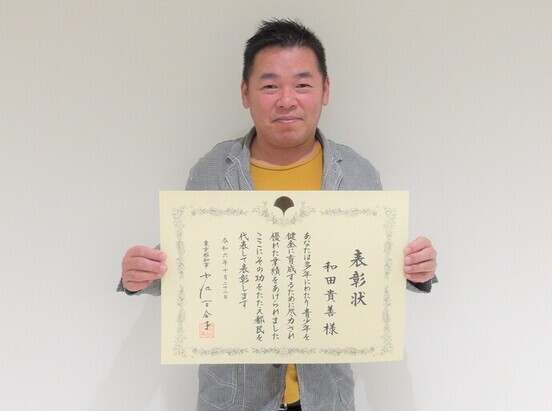 表彰状
和田貴善様
あなたは多年にわたり青少年を
健全に育成するために尽力され
優れた業績をあげられました
ここにその功をたたえ都民を
代表して表彰します
令和六年十月二十二日
東京都知事 小池百合子